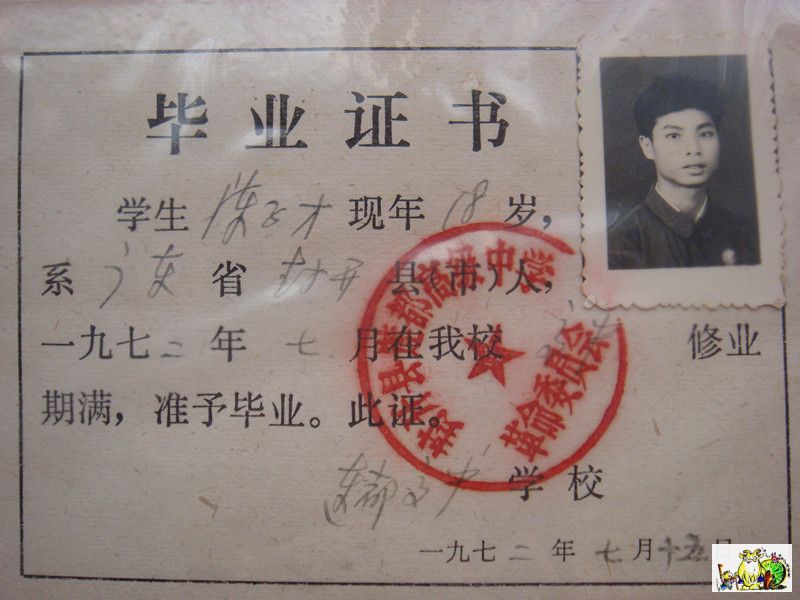 毕业证书
学生 陈子才 现年 18 岁，
系 广东 省 封开 县（市）人，
一九七二 年 七 月在我校 高中 修业
期满，准予毕业。此证。
学校
一九七二 年 七 月十五日
革命委员会